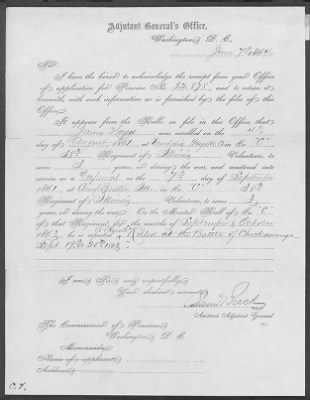 Adjutant General's Office,
Washington, D. C.
Sir:
I have the honor to acknowledge the receipt from your Office
of application for Pension No. 52.878, and to return it
herewith, with such information as is furnished by the files of this
Office.
It appears from the Rolls on file in this Office, that
was enrolled on the
day of August, 1861, at in Co. "C"
38th Regiment of Illinois Volunteers, to
serve 3 years, or during the war, and mustered into
service as a Corporal on the day of September
1861, at Camp Butler Ills. in Co. "C" 38th
Regiment of Illinois Volunteers, to serve 3
years, or during the war. On the Muster Roll of Co. "C"
of that Regiment, for the months of September & October
1863, he is reported Died at the Battle of Chickamauga
Sept.
I am, Sir, very respectfully,
Your obedient servant,
Assistant Adjutant General
The Commissioner of Pensions,
Washington, D. C.
Memoranda:
Name of applicant,
Address,